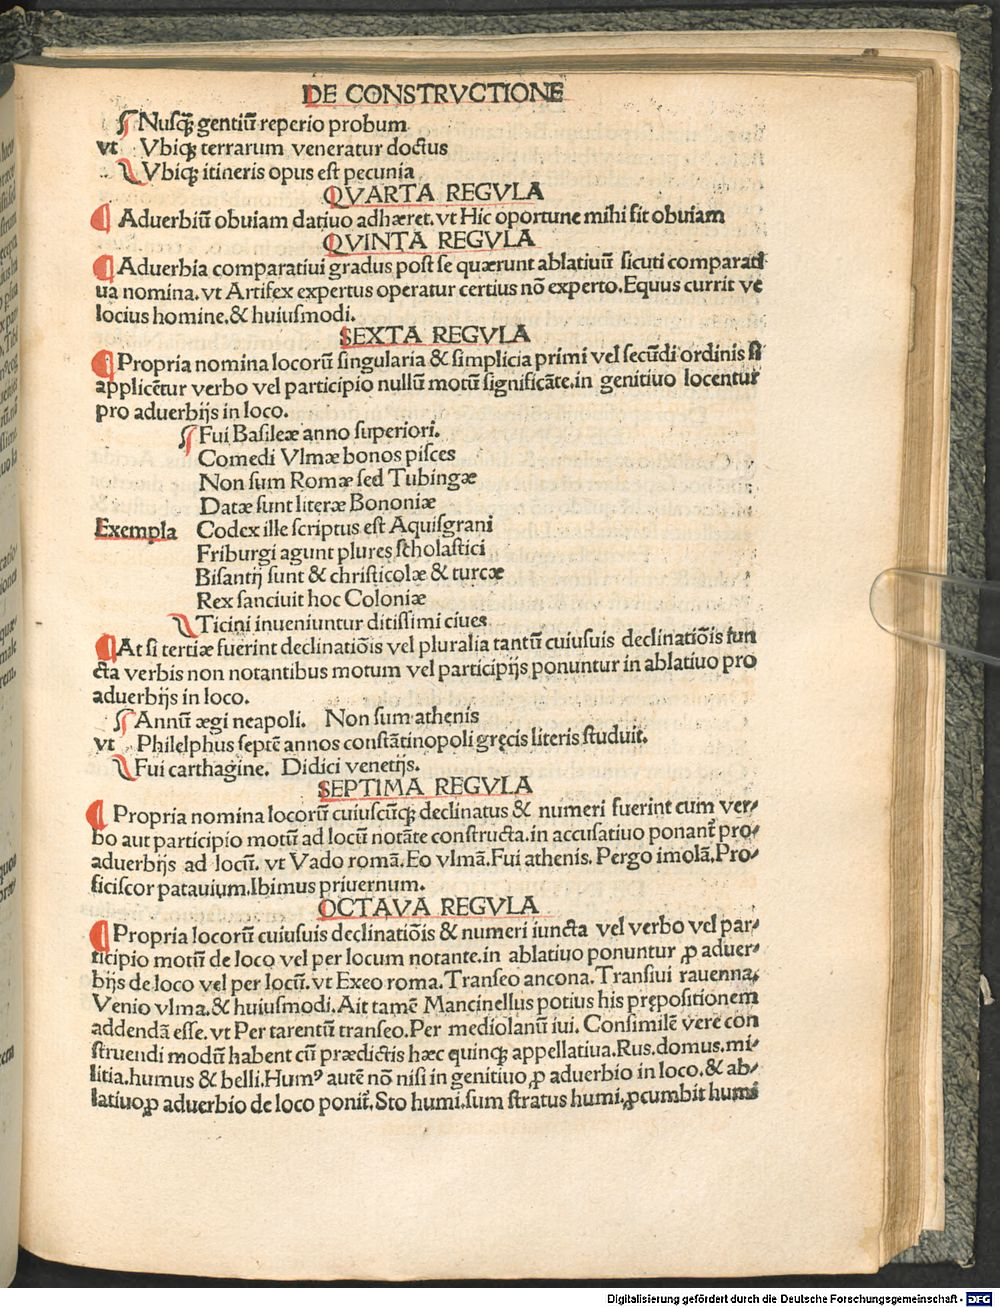 DE CONSTRVCTIONE
Nusq̃ gentiū reperio probum
vt Vbiqꝫ terrarum veneratur doctus
Vbiqꝫ itineris opus est pecunia
QVARTA REGVLA
Aduerbiū obuiam datiuo adhæret. vt Hic oportune mihi fit obuiam
QVINTA REGVLA
Aduerbia comparatiui gradus post se quærunt ablatiuū sicuti comparati
ua nomina. vt Artifex expertus operatur certius nō experto. Equus currit ve
locius homine. & huiusmodi.
SEXTA REGVLA
Propria nomina locorū singularia & simplicia primi vel secūdi ordinis si
applicētur verbo vel participio nullū motū significāte. in genitiuo locentur
pro aduerbijs in loco.
Fui Basileæ anno superiori.
Comedi Vlmæ bonos pisces
Non sum Romæ sed Tubingæ
Datæ sunt literæ Bononiæ
Exempla Codex ille scriptus est Aquisgrani
Friburgi agunt plures scholastici
Bisantij sunt & christicolæ & turcæ
Rex sanciuit hoc Coloniæ
Ticini inueniuntur ditissimi ciues
At si tertiæ fuerint declinatiōis vel pluralia tantū cuiusuis declinatiōis iun
cta verbis non notantibus motum vel participijs ponuntur in ablatiuo pro
aduerbijs in loco.
Annū ægi neapoli. Non sum athenis
vt Philelphus septē annos constātinopoli gręcis literis studuit.
Fui carthagine. Didici venetijs.
SEPTIMA REGVLA
Propria nomina locorū cuiuscūqꝫ declinatus & numeri fuerint cum ver⸗
bo aut participio motū ad locū notāte constructa. in accusatiuo ponant᷑ pro⸗
aduerbijs ad locū. vt Vado romā. Eo vlmā. Fui athenis. Pergo imolā. Pro⸗
ficiscor patauium. Ibimus priuernum.
OCTAVA REGVLA
Propria locorū cuiusuis declinatiōis & numeri iuncta vel verbo vel par⸗
ticipio motū de loco vel per locum notante. in ablatiuo ponuntur ꝓ aduer⸗
bijs de loco vel per locū. vt Exeo roma. Transeo ancona. Transiui rauenna.
Venio vlma. & huiusmodi. Ait tamē Mancinellus potius his prępositionem
addendā esse. vt Per tarentū transeo. Per mediolanū iui. Consimilē vere con
struendi modū habent cū prædictis hæc quinqꝫ appellatiua. Rus. domus. mi⸗
litia. humus & belli. Humꝰ autē nō nisi in genitiuo ꝓ aduerbio in loco. & ab⸗
latiuo ꝓ aduerbio de loco ponit᷑. Sto humi. sum stratus humi. ꝓcumbit humi
Digitalisierung gefördert durch die Deutsche Forschungsgemeinschaft - DFG